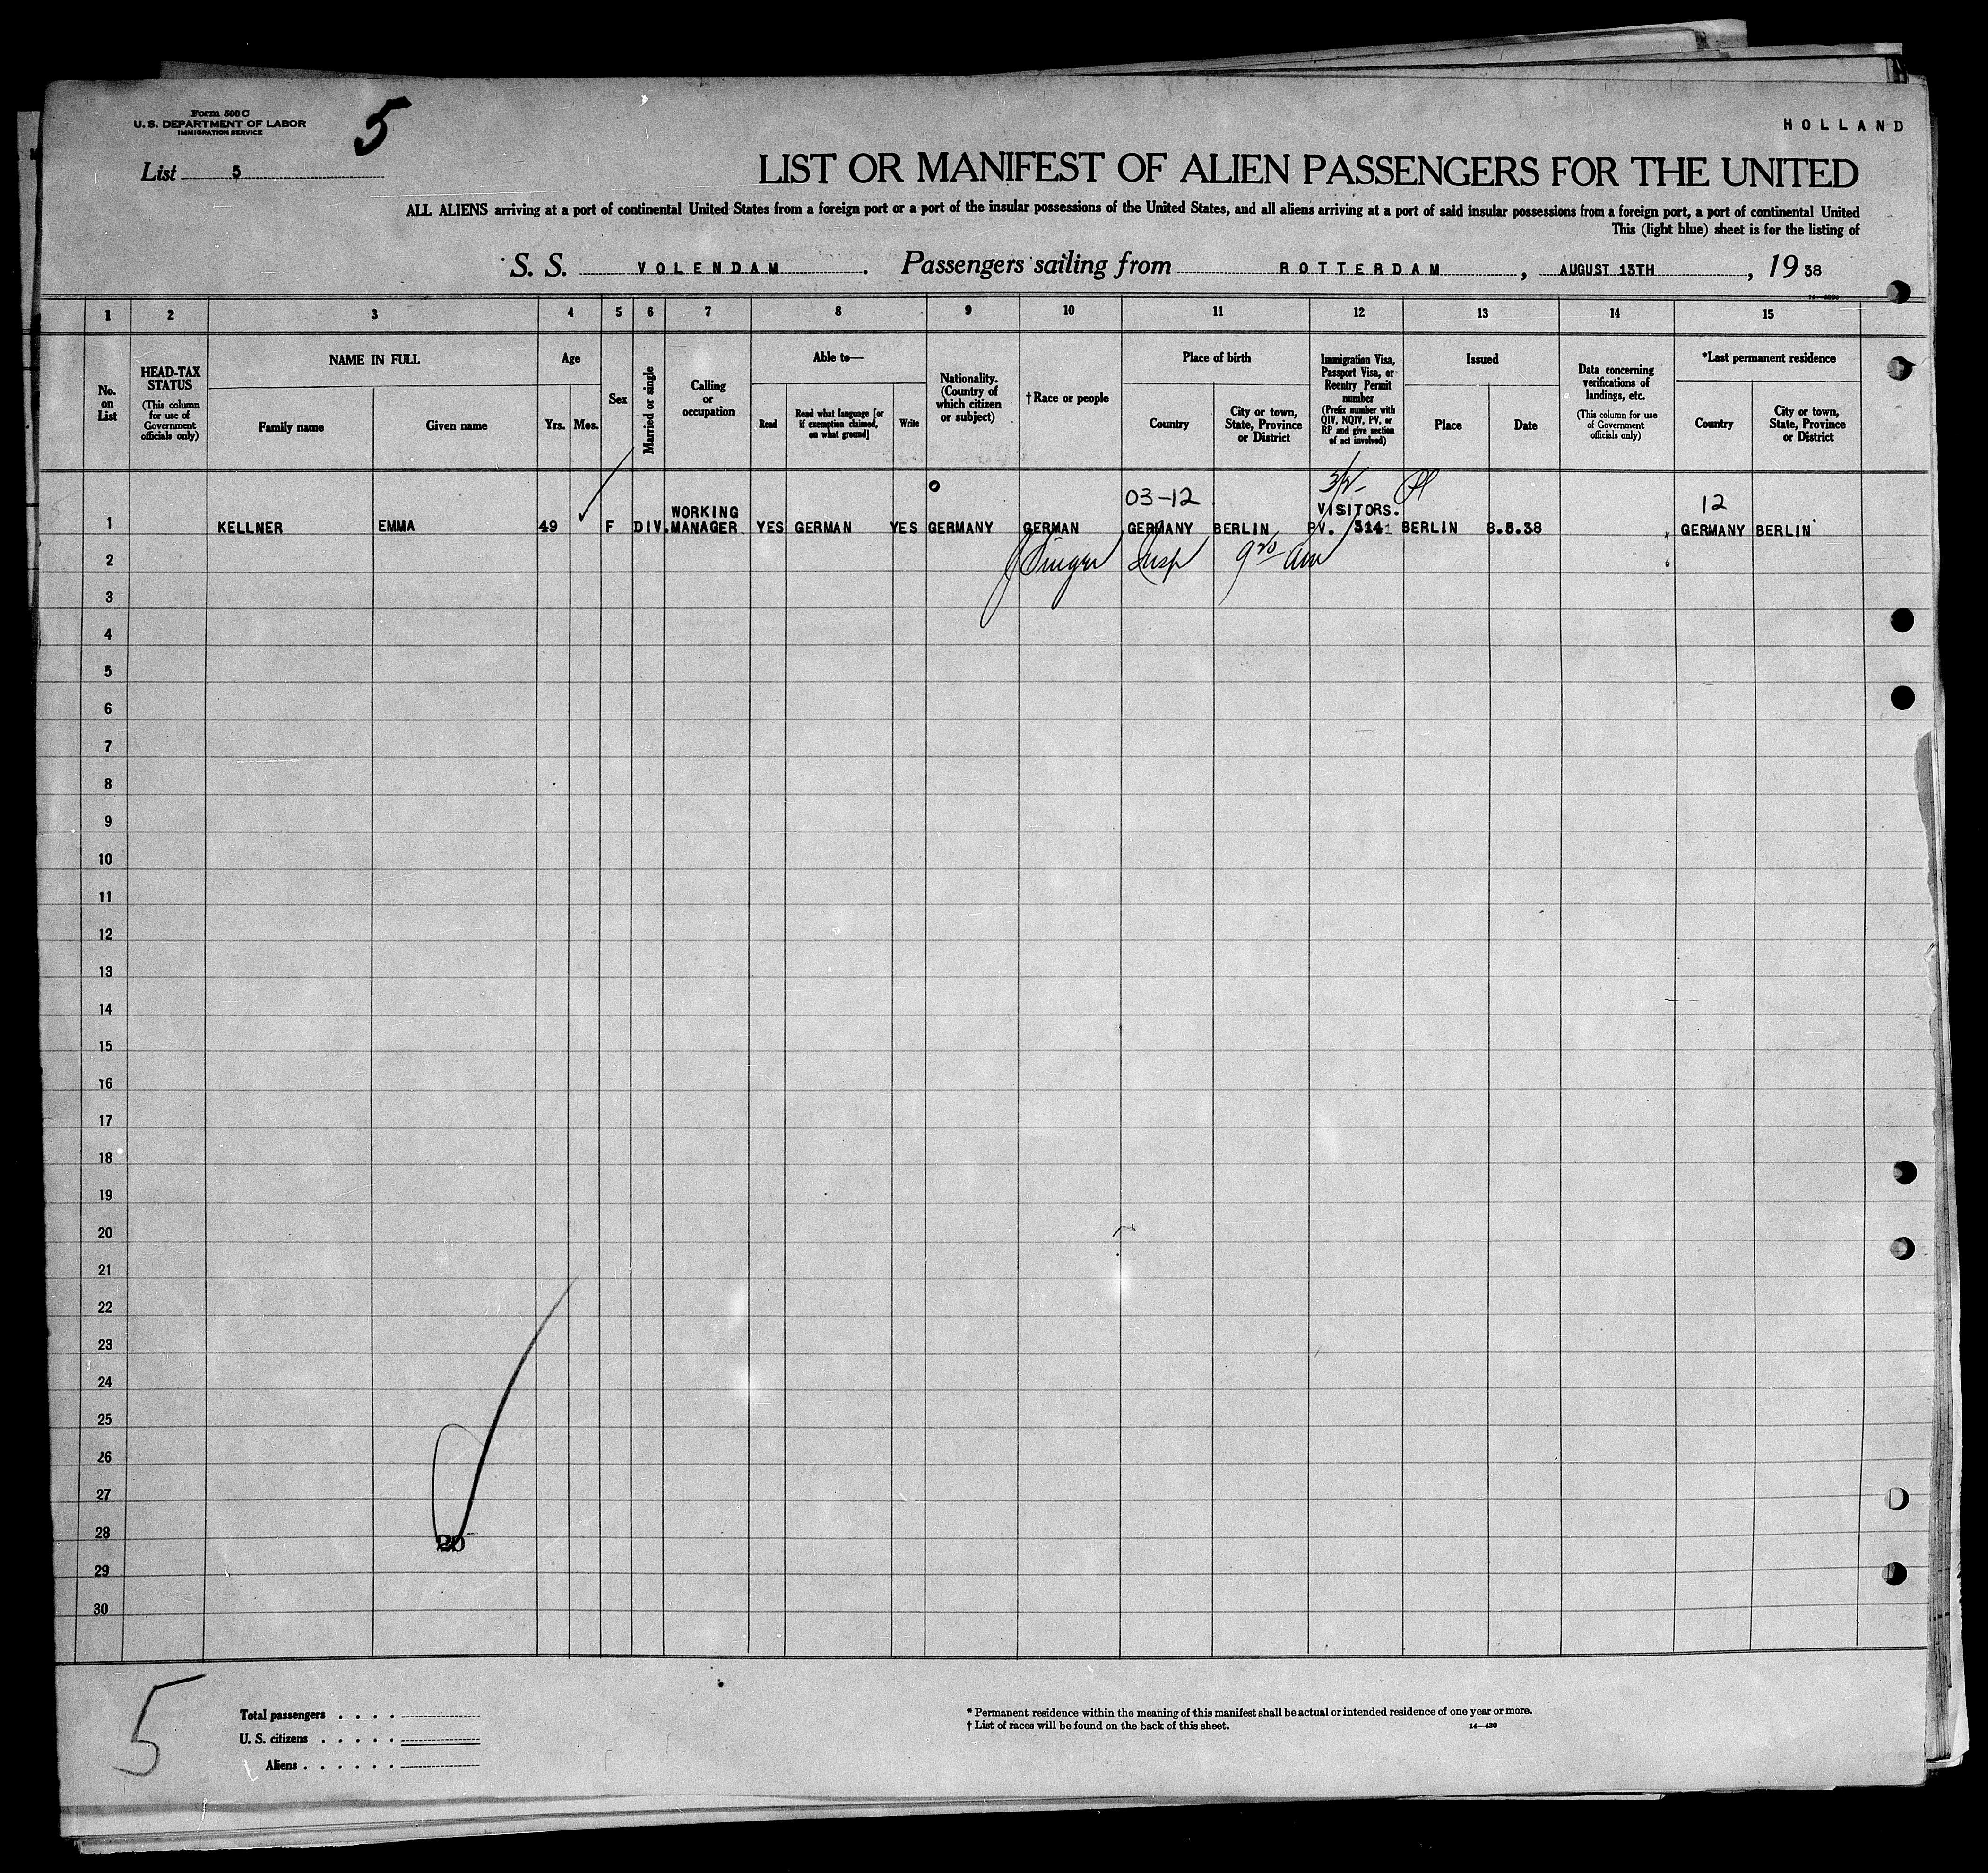 Form 500 C
U. S. DEPARTMENT OF LABOR
IMMIGRATION SERVICE
5
HOLLAND
List 5
LIST OR MANIFEST OF ALIEN PASSENGERS FOR THE UNITED
ALL ALIENS arriving at a port of continental United States from a foreign port or a port of the insular possessions of the United States, and all aliens arriving at a port of said insular possessions from a foreign port, a port of continental United
This (light blue) sheet is for the listing of
S. S. VOLENDAM. Passengers sailing from ROTTERDAM, AUGUST 13TH, 19 38
1 2 3 4 5 6 7 8 9 10 11 12 13 14 15
No. on List
HEAD-TAX STATUS
(This column for use of Government officials only)
NAME IN FULL
Family name
Given name
Age
Yrs.
Mos.
Sex
Married or single
Calling or occupation
Able to—
Read
Read what language [or if exemption claimed, on what ground]
Write
Nationality. (Country of which citizen or subject)
†Race or people
Place of birth
Country
City or town, State, Province or District
Immigration Visa, Passport Visa, or Reentry Permit number
(Prefix number with QIV, NQIV, PV, or RP and give section of act involved)
Issued
Place
Date
Data concerning verifications of landings, etc.
(This column for use of Government officials only)
*Last permanent residence
Country
City or town, State, Province or District
03-12
12
WORKING
VISITORS.
1 KELLNER EMMA 49 F DIV. MANAGER YES GERMAN YES GERMANY GERMAN GERMANY BERLIN PV. 314 BERLIN 8.8.38 GERMANY BERLIN
J Singer Insp 9 30 am
2
3
4
5
6
7
8
9
10
11
12
13
14
15
16
17
18
19
20
21
22
23
24
25
26
27
28
29
30
5
Total passengers
U. S. citizens
Aliens
* Permanent residence within the meaning of this manifest shall be actual or intended residence of one year or more.
† List of races will be found on the back of this sheet.
14—430